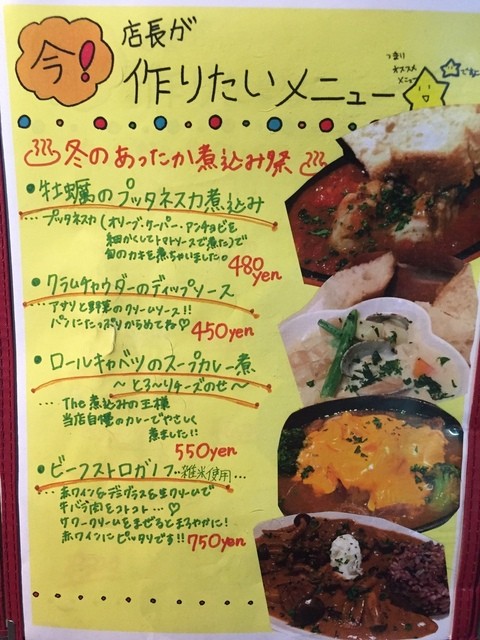 今!
店長が
作りたいメニュー
つまり
オススメ
メニュー
ですね
冬のあったか煮込み祭
・牡蠣のプッタネスカ煮込み
…プッタネスカ(オリーブ・ケーパー・アンチョビを
細かくしてトマトソースで煮た)で
旬のカキを煮ちゃいました。
480yen
・クラムチャウダーのディップソース
…アサリと野菜のクリームソース!!
パンにたっぷりからめてね♡
450yen
・ロールキャベツのスープカレー煮
〜とろ〜りチーズのせ〜
…The煮込みの王様
当店自慢のカレーでやさしく
煮ました!!
550yen
・ビーフストロガノフ…雑米使用…
…赤ワイン&デミグラス&生クリームで
牛バラ肉をコトコト…♡
サワークリームをまぜるとまろやかに!
赤ワインにピッタリです!!
750yen